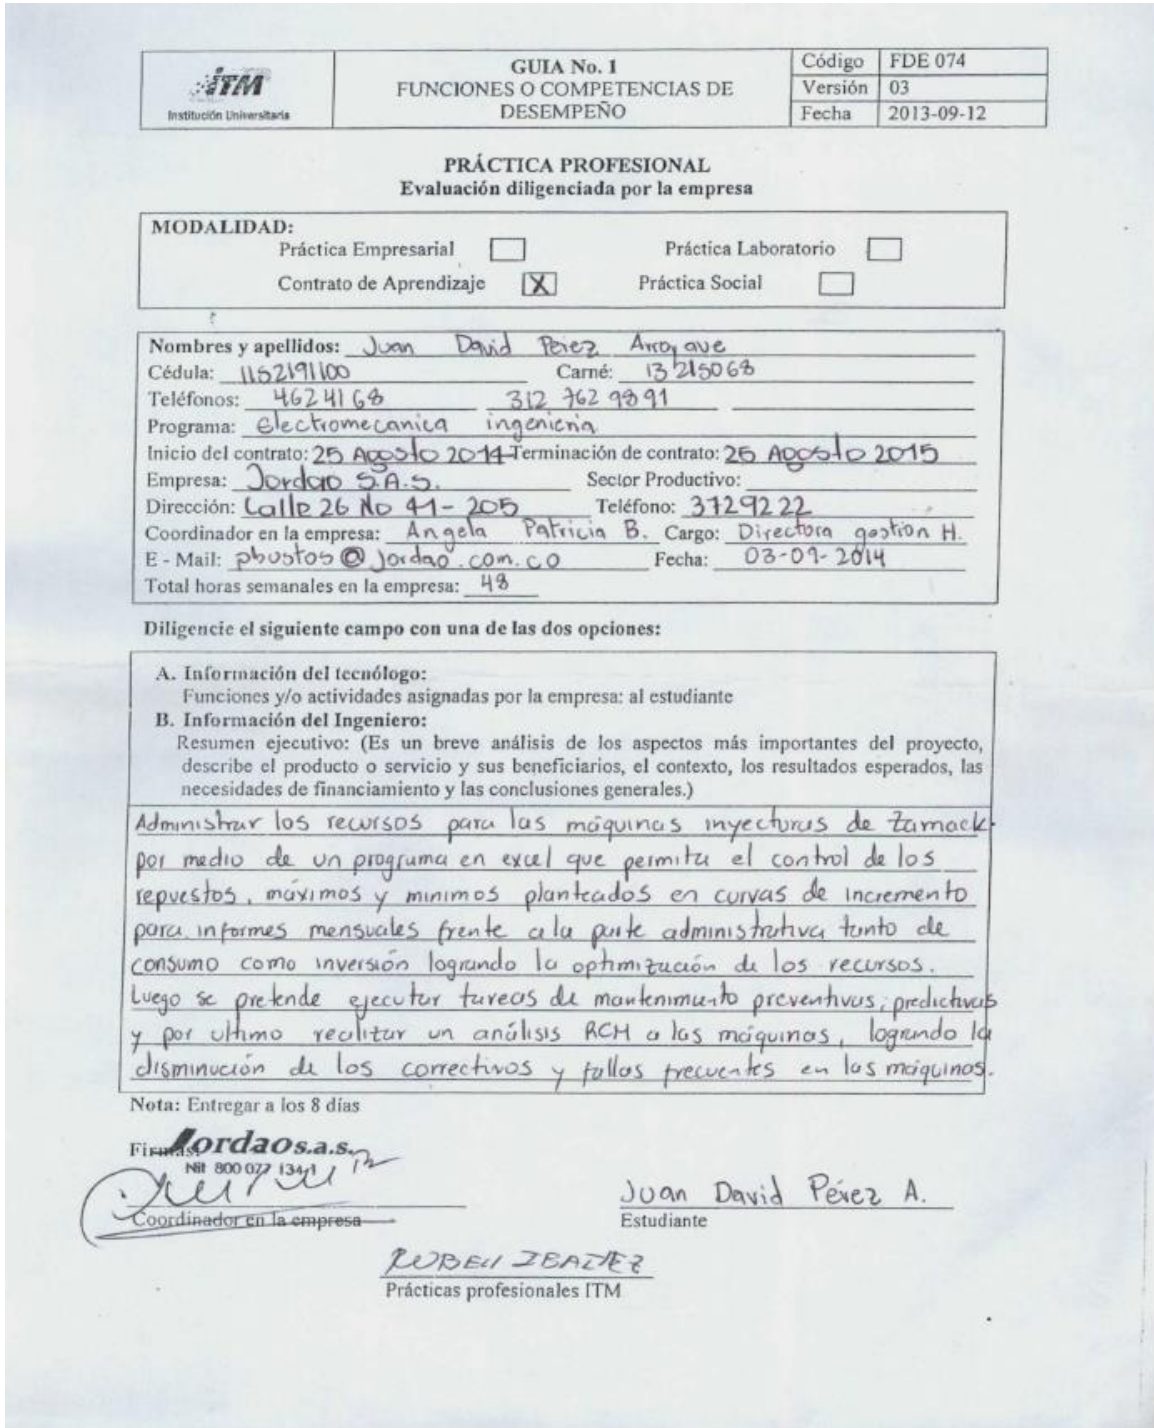 iTM
Institución Universitaria
GUIA No. 1
FUNCIONES O COMPETENCIAS DE
DESEMPEÑO
Código FDE 074
Versión 03
Fecha 2013-09-12
PRÁCTICA PROFESIONAL
Evaluación diligenciada por la empresa
MODALIDAD:
Práctica Empresarial Práctica Laboratorio
Contrato de Aprendizaje X Práctica Social
Nombres y apellidos: Juan David Pérez Arroyave
Cédula: 1152191100 Carné: 13215068
Teléfonos: 4624168 312 762 9891
Programa: electromecanica ingenieria
Inicio del contrato: 25 Agosto 2014 Terminación de contrato: 25 Agosto 2015
Empresa: Jordao S.A.S. Sector Productivo:
Dirección: Calle 26 No 41-205 Teléfono: 3729222
Coordinador en la empresa: Angela Patricia B. Cargo: Directora gestion H.
E - Mail: pbustos@jordao.com.co Fecha: 03-09-2014
Total horas semanales en la empresa: 48
Diligencie el siguiente campo con una de las dos opciones:
A. Información del tecnólogo:
Funciones y/o actividades asignadas por la empresa: al estudiante
B. Información del Ingeniero:
Resumen ejecutivo: (Es un breve análisis de los aspectos más importantes del proyecto,
describe el producto o servicio y sus beneficiarios, el contexto, los resultados esperados, las
necesidades de financiamiento y las conclusiones generales.)
Administrar los recursos para las máquinas inyectoras de zamack
por medio de un programa en excel que permita el control de los
repuestos, máximos y minimos planteados en curvas de incremento
para informes mensuales frente a la parte administrativa tanto de
consumo como inversión logrando la optimización de los recursos.
Luego se pretende ejecutar tareas de mantenimiento preventivas, predictivas
y por ultimo realizar un análisis RCM a las máquinas, logrando la
disminución de los correctivos y fallas frecuentes en las máquinas.
Nota: Entregar a los 8 días
Firmas: Jordao s.a.s.
Nit 800 077 134-1
Coordinador en la empresa
Juan David Pérez A.
Estudiante
RUBEN IBAÑEZ
Prácticas profesionales ITM